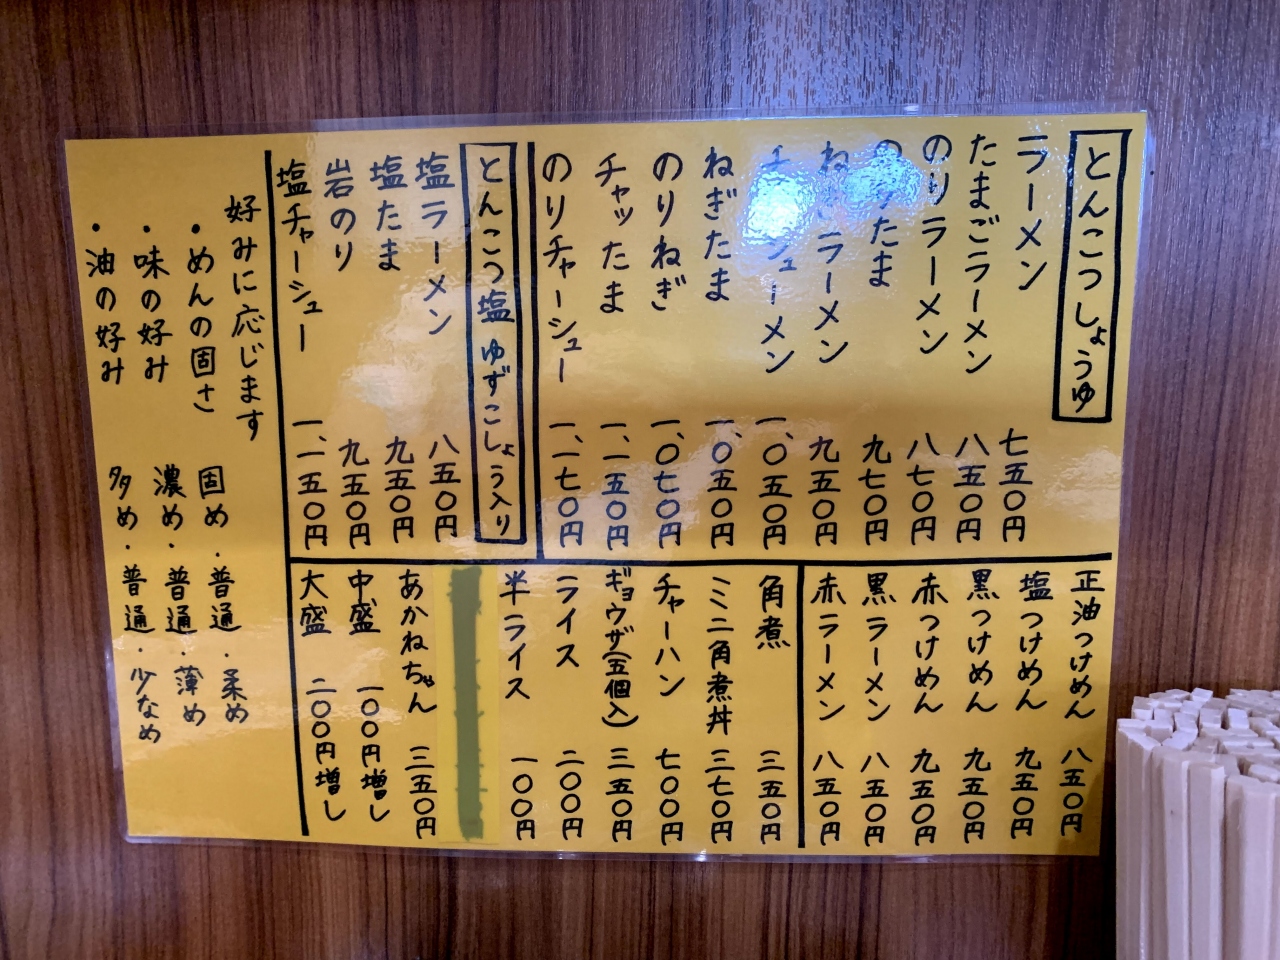 とんこつしょうゆ
ラーメン 七五〇円
たまごラーメン 八五〇円
のりラーメン 八七〇円
のりたま 九七〇円
ねぎラーメン 九五〇円
チャーシューメン 一、〇五〇円
ねぎたま 一、〇五〇円
のりねぎ 一、〇七〇円
チャッたま 一、一五〇円
のりチャーシュー 一、一七〇円
とんこつ塩 ゆずこしょう入り
塩ラーメン 八五〇円
塩たま 九五〇円
岩のり 九五〇円
塩チャーシュー 一、一五〇円
正油つけめん 八五〇円
塩つけめん 九五〇円
黒つけめん 九五〇円
赤つけめん 九五〇円
黒ラーメン 八五〇円
赤ラーメン 八五〇円
角煮 三五〇円
ミニ角煮丼 三七〇円
チャーハン 七〇〇円
ギョウザ(五個入) 三五〇円
ライス 二〇〇円
半ライス 一〇〇円
あかねちゃん 三五〇円
中盛 一〇〇円増し
大盛 二〇〇円増し
好みに応じます
・めんの固さ 固め・普通・柔め
・味の好み 濃め・普通・薄め
・油の好み 多め・普通・少なめ